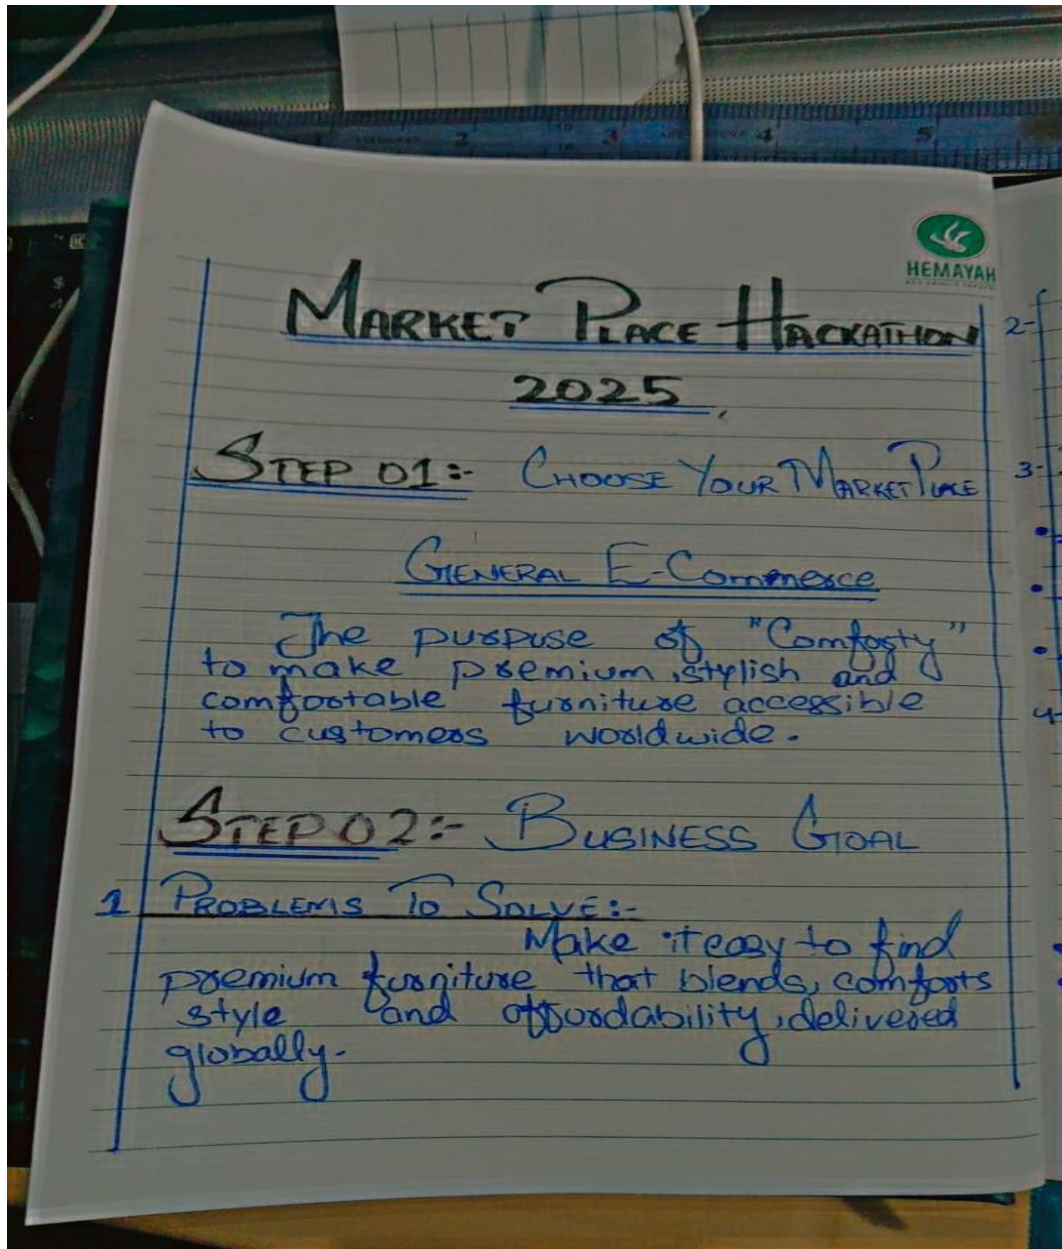 HEMAYAH
MARKET PLACE HACKATHON
2025
STEP 01:- CHOOSE YOUR MARKET PLACE
GENERAL E-Commerce
The purpuse of "Comforty"
to make premium, stylish and
comfortable furniture accessible
to customers worldwide.
STEP 02:- BUSINESS GOAL
1 PROBLEMS TO SOLVE:-
Make it easy to find
premium furniture that blends, comforts
style and affordability, delivered
globally.
2-
3-
4-
1 2 3 4 5